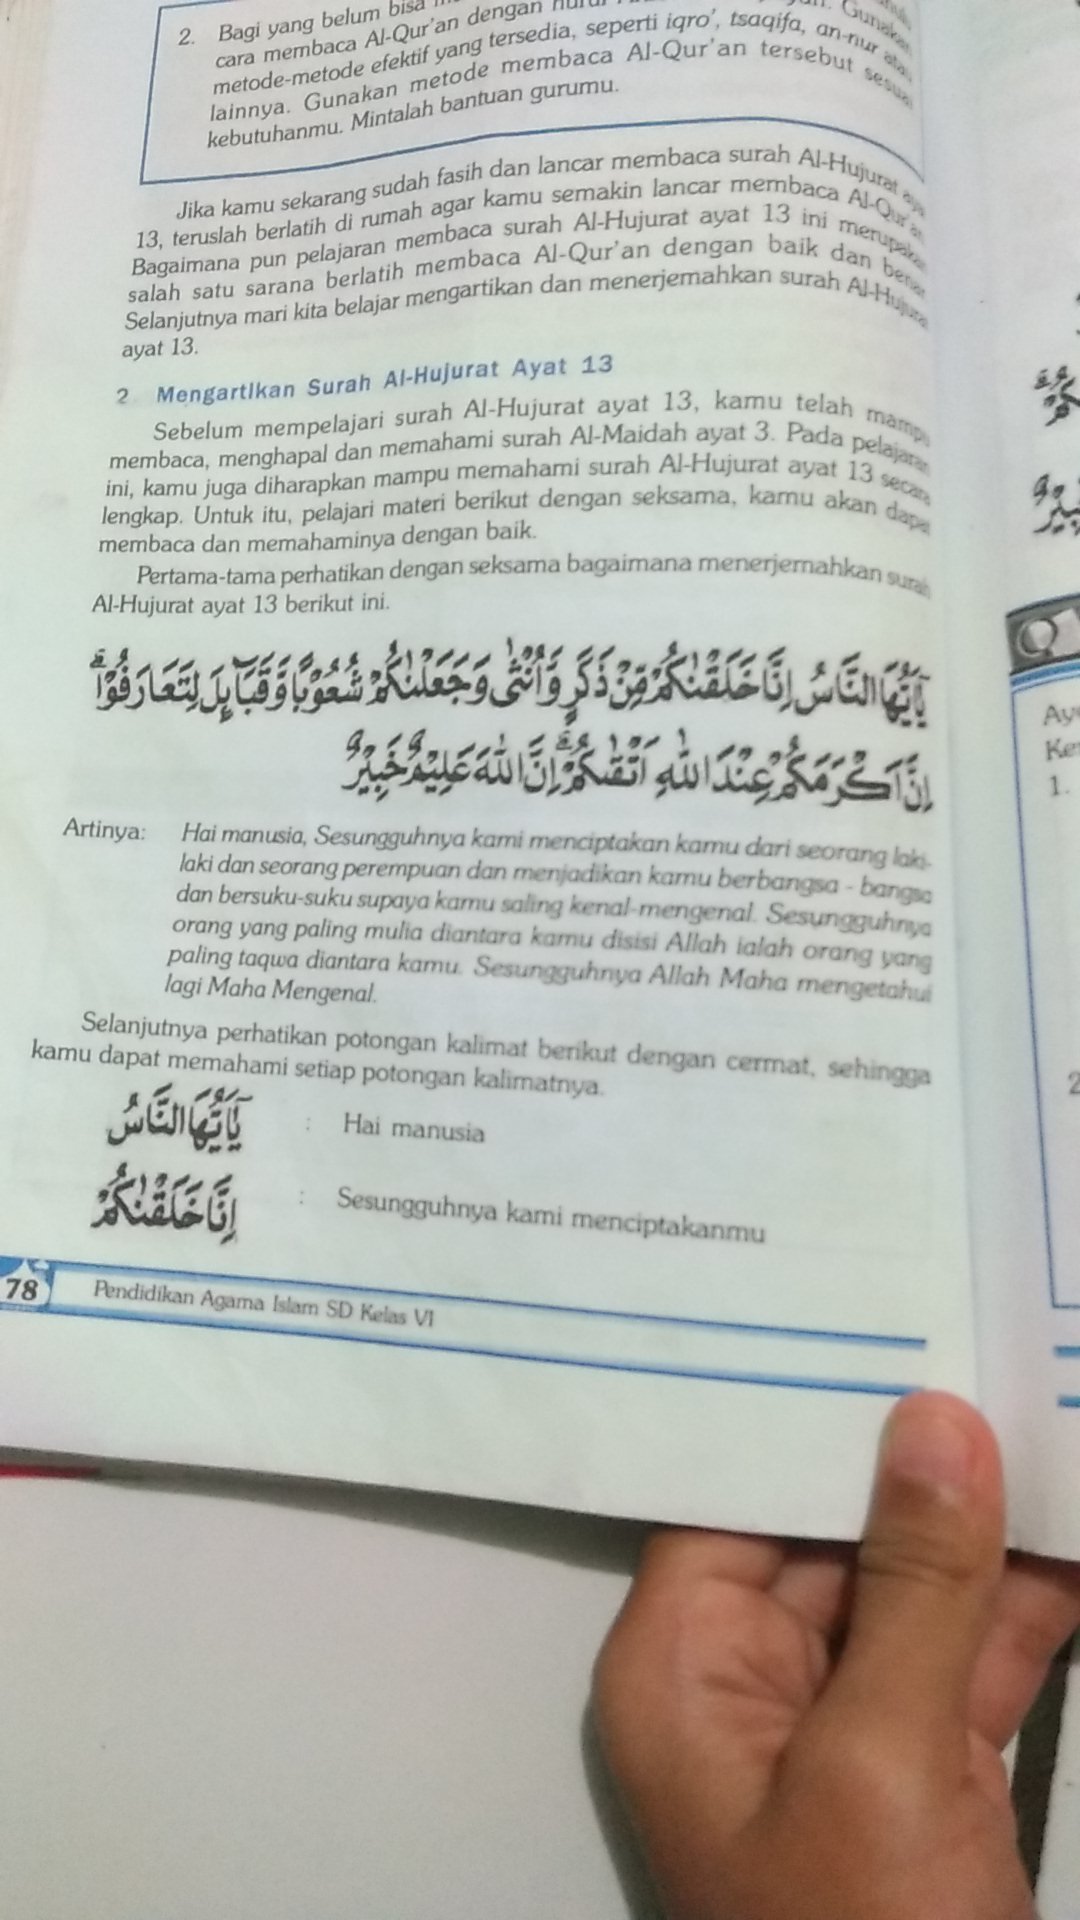 2. Bagi yang belum bisa
cara membaca Al-Qur'an dengan
metode-metode efektif yang tersedia, seperti iqro', tsaqifa, an-nur atau
lainnya. Gunakan metode membaca Al-Qur'an tersebut sesuai
kebutuhanmu. Mintalah bantuan gurumu.
Jika kamu sekarang sudah fasih dan lancar membaca surah Al-Hujurat
13, teruslah berlatih di rumah agar kamu semakin lancar membaca Al-Qur'an
Bagaimana pun pelajaran membaca surah Al-Hujurat ayat 13 ini merupakan
salah satu sarana berlatih membaca Al-Qur'an dengan baik dan benar
Selanjutnya mari kita belajar mengartikan dan menerjemahkan surah Al-Hujurat
ayat 13.
2 Mengartikan Surah Al-Hujurat Ayat 13
Sebelum mempelajari surah Al-Hujurat ayat 13, kamu telah mampu
membaca, menghapal dan memahami surah Al-Maidah ayat 3. Pada pelajaran
ini, kamu juga diharapkan mampu memahami surah Al-Hujurat ayat 13 secara
lengkap. Untuk itu, pelajari materi berikut dengan seksama, kamu akan dapat
membaca dan memahaminya dengan baik.
Pertama-tama perhatikan dengan seksama bagaimana menerjemahkan surah
Al-Hujurat ayat 13 berikut ini.
يٰٓاَيُّهَا النَّاسُ اِنَّا خَلَقْنٰكُمْ مِّنْ ذَكَرٍ وَّاُنْثٰى وَجَعَلْنٰكُمْ شُعُوْبًا وَّقَبَاۤىِٕلَ لِتَعَارَفُوْاۚ
اِنَّ اَكْرَمَكُمْ عِنْدَ اللّٰهِ اَتْقٰىكُمْۗ اِنَّ اللّٰهَ عَلِيْمٌ خَبِيْرٌ
Artinya: Hai manusia, Sesungguhnya kami menciptakan kamu dari seorang laki-
laki dan seorang perempuan dan menjadikan kamu berbangsa - bangsa
dan bersuku-suku supaya kamu saling kenal-mengenal. Sesungguhnya
orang yang paling mulia diantara kamu disisi Allah ialah orang yang
paling taqwa diantara kamu. Sesungguhnya Allah Maha mengetahui
lagi Maha Mengenal.
Selanjutnya perhatikan potongan kalimat berikut dengan cermat, sehingga
kamu dapat memahami setiap potongan kalimatnya.
يٰٓاَيُّهَا النَّاسُ : Hai manusia
اِنَّا خَلَقْنٰكُمْ : Sesungguhnya kami menciptakanmu
78 Pendidikan Agama Islam SD Kelas VI
1.
2